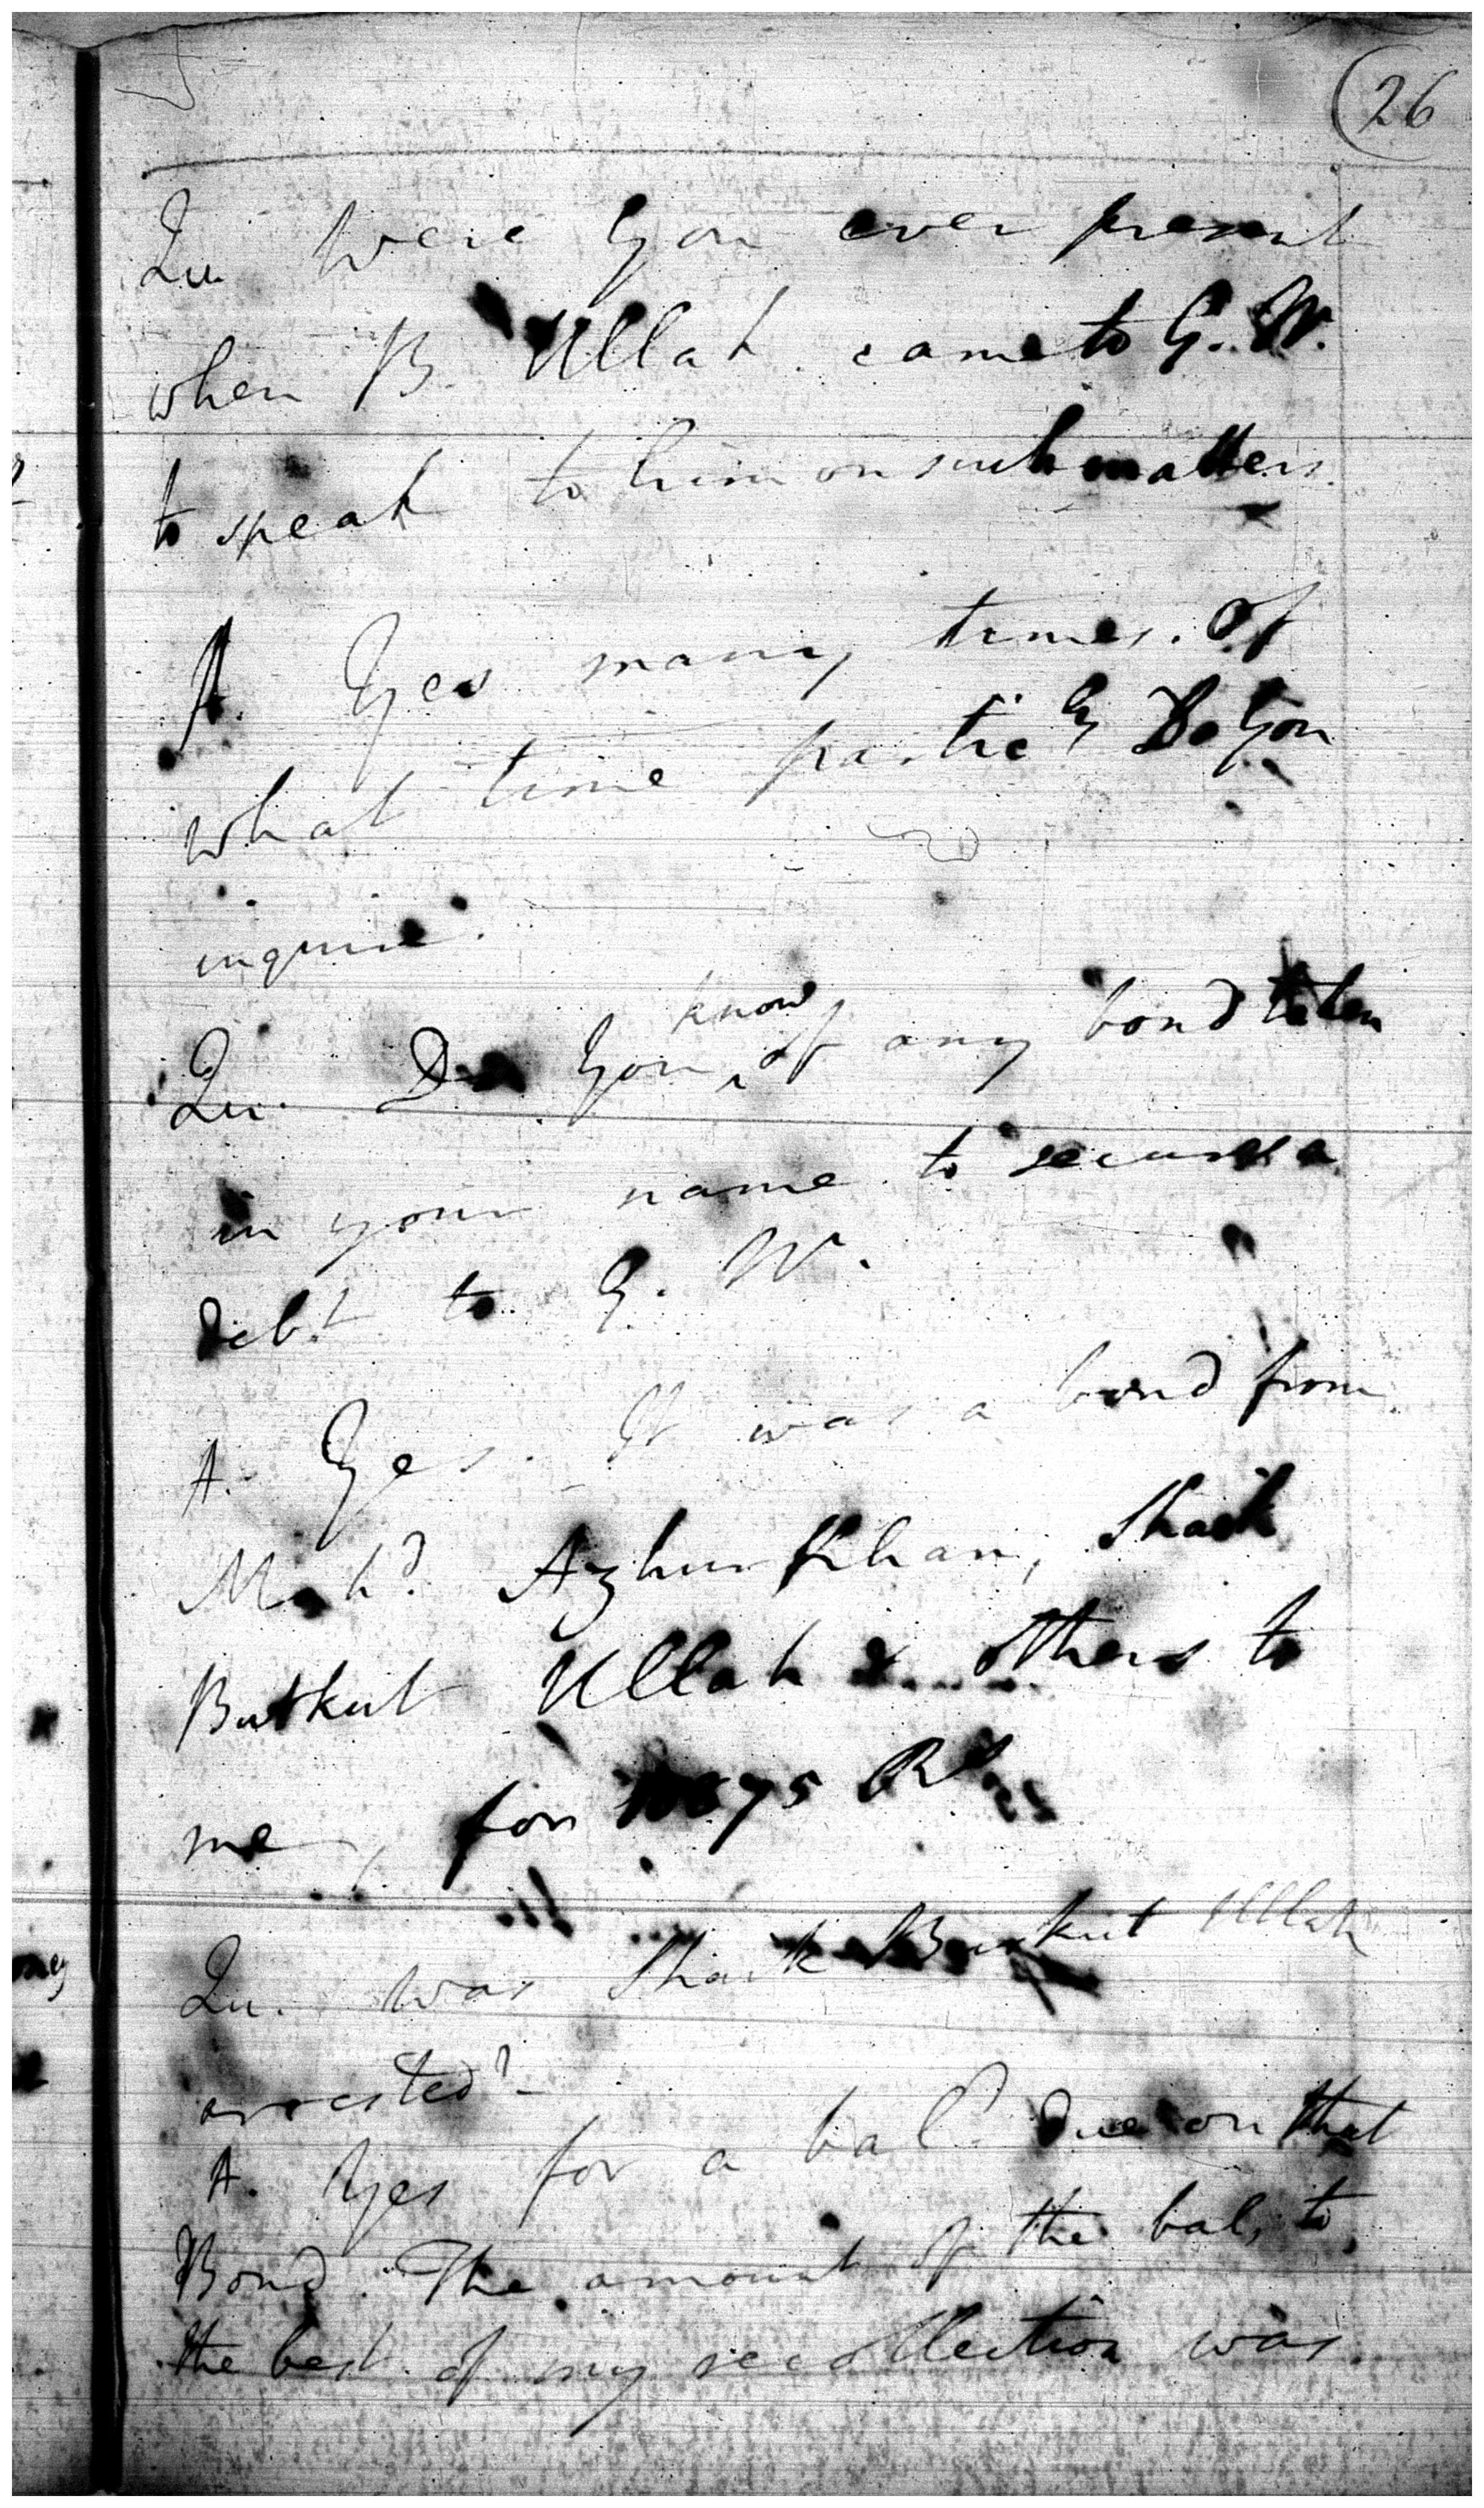 (26
Qu. Were you ever present
when B. Ullah came to G. W.
to speak to him on such matters.
A. Yes many times. Of
what time partic^ly Do you
inquire.
Qu. Do you know of any bond taken
in your name to secure a
debt to G. W.
A. Yes. It was a bond from
Moh^d. Azhur Khan, Shaik
Burkut Ullah & others to
me for R^s
Qu. Was Shaik Burkut Ullah
arrested?-
A. Yes for a bal^e. due on that
Bond. The amount of the bal, to
the best of my recollection was